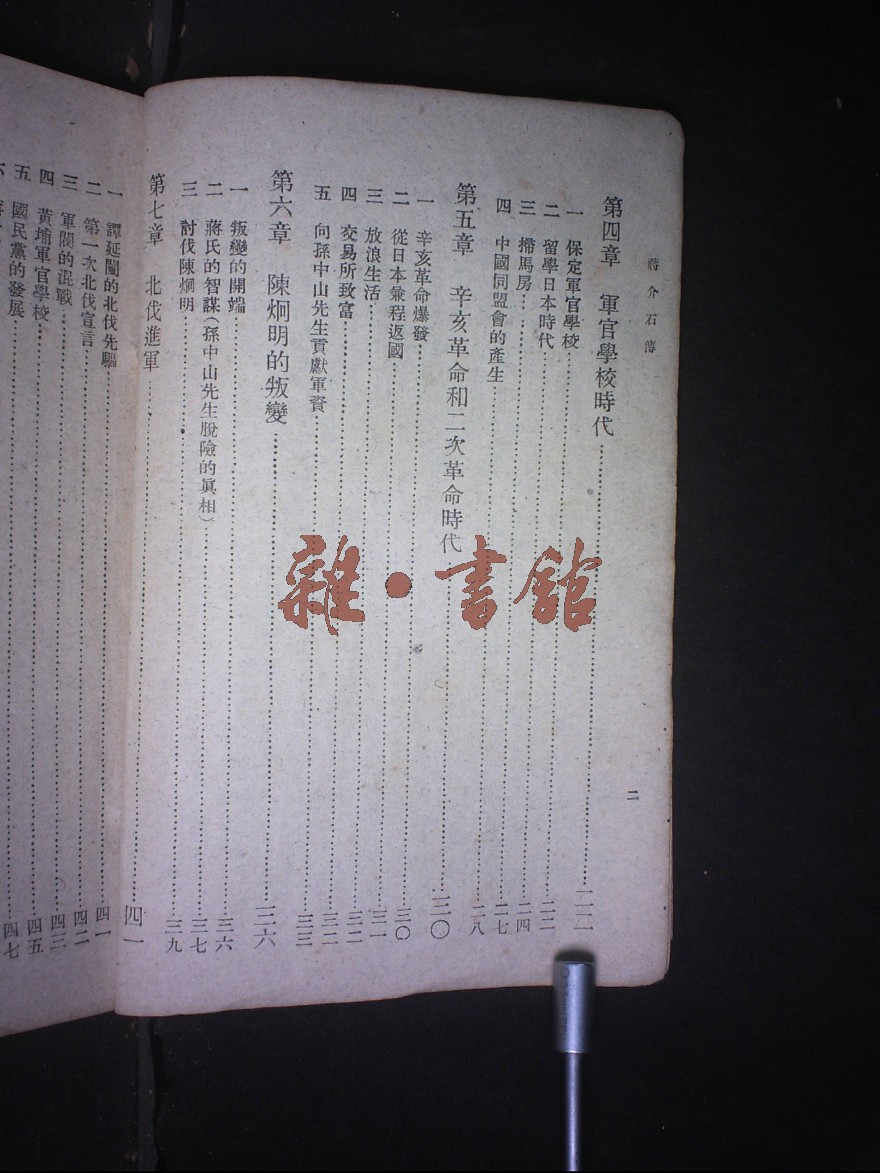 蔣介石傳
二
第四章 軍官學校時代……二二
一 保定軍官學校……二二
二 留學日本時代……二二
三 掃馬房……二四
四 中國同盟會的產生……二七
第五章 辛亥革命和二次革命時代……三〇
一 辛亥革命爆發……三〇
二 從日本兼程返國……三一
三 放浪生活……三一
四 交易所致富……三二
五 向孫中山先生貢獻軍資……三三
第六章 陳炯明的叛變……三六
一 叛變的開端……三六
二 蔣氏的智謀(孫中山先生脫險的眞相)……三七
三 討伐陳炯明……三九
第七章 北伐進軍……四一
一 譚延闓的北伐先驅……四一
二 第一次北伐宣言……四二
三 軍閥的混戰……四三
四 黃埔軍官學校……四五
五 國民黨的發展……四七
六
雜·書館